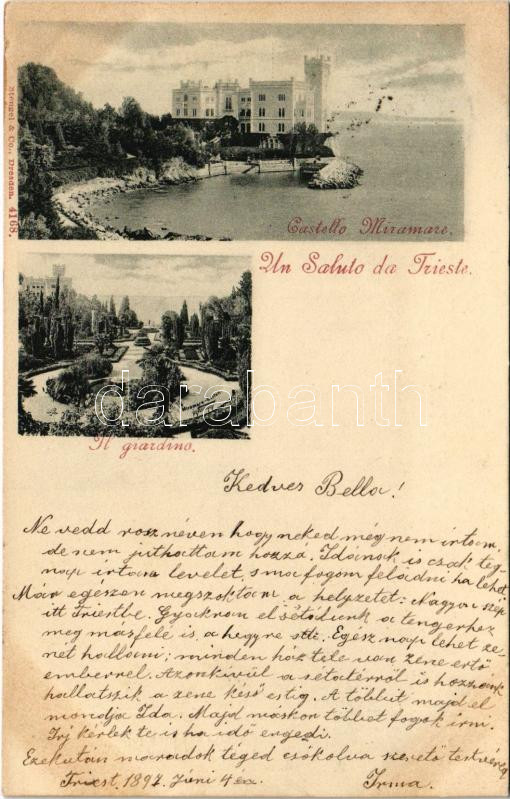 Stengel & Co., Dresden. 4168.
Castello Miramare.
Un Saluto da Trieste.
darabanth
Il giardino.
Kedves Bella!
Ne vedd rosz néven hogy neked még nem irtam,
de nem juthattam hozzá. Idának is csak teg-
nap irtam levelet, s ma fogom feladni ha lehet.
Már egészen megszoktam a helyzetet. Nagyon szép
itt Triestbe. Gyakran elsétálunk a tengerhez
meg másfele is, a hegyre stb. Egész nap lehet ze-
nét hallani; minden ház tele van zene értő
emberrel. Azonkivül a sétatérről is hozzánk
hallatszik a zene késő estig. A többit majd el
mondja Ida. Majd máskor többet fogok irni.
Irj kérlek te is ha idő engedi.
Ezekután maradok téged csókolva szerető testvéred
Triest, 1897. Juni 4én Irma.